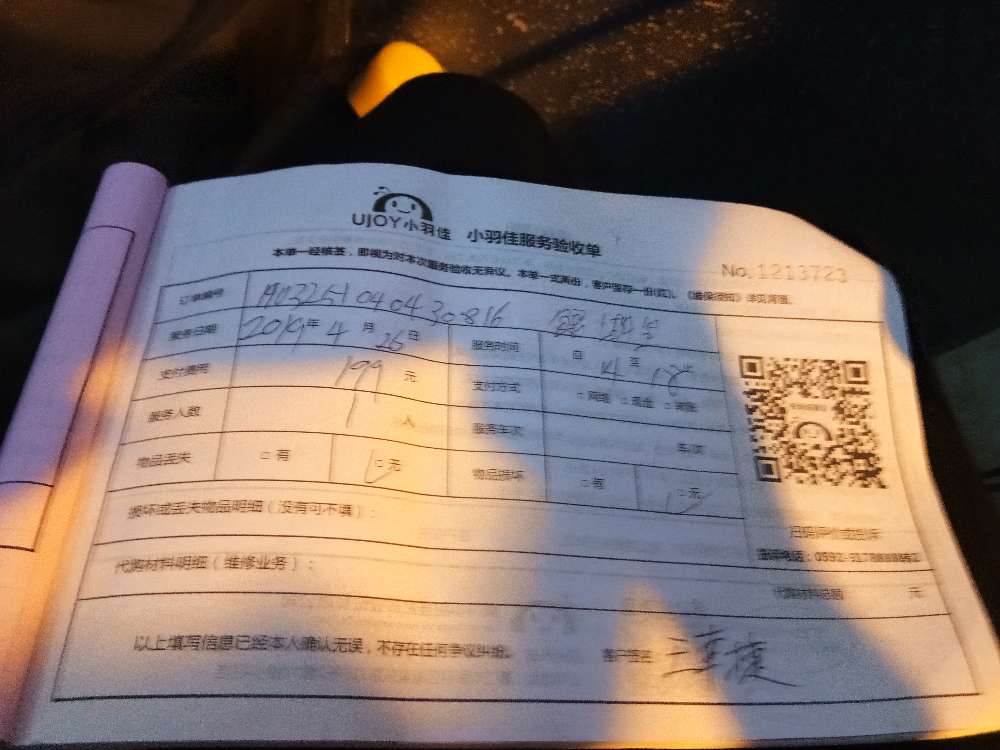 UJOY小羽佳 小羽佳服务验收单
No.1213723
本单一经核签，即视为对本次服务验收无异议。本单一式两份，客户留存一份(红)。《维保须知》详见背面。
订单编号
服务日期 2019年 4月 26日 服务时间 自 14 至 18
支付费用 199 元 支付方式 □ 网络 □ 现金 □ 转账
服务人数 1 人 服务车次 车/次
物品丢失 □ 有 □ 无 物品损坏 □ 有 □ 无
扫码评价或投诉
损坏或丢失物品明细（没有可不填）：
代购材料明细（维修业务）： 代购材料总额 元
以上填写信息已经本人确认无误，不存在任何争议纠纷。 客户签名